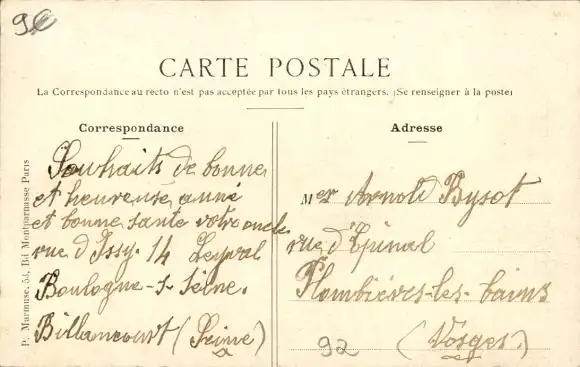 9€
CARTE POSTALE
La Correspondance au recto n'est pas acceptée par tous les pays étrangers. (Se renseigner à la poste)
Correspondance
Souhaits de bonne
et heureuse anné
et bonne sante votre oncle
rue d'Issy. 14 Leyval
Boulogne-s-Seine.
Billancourt (Seine)
Adresse
Mer Arnold Bysot
rue d'Epinal
Plombières-les-bains
92 (Vosges.)
P. Marmuse, 54, Bd Montparnasse Paris